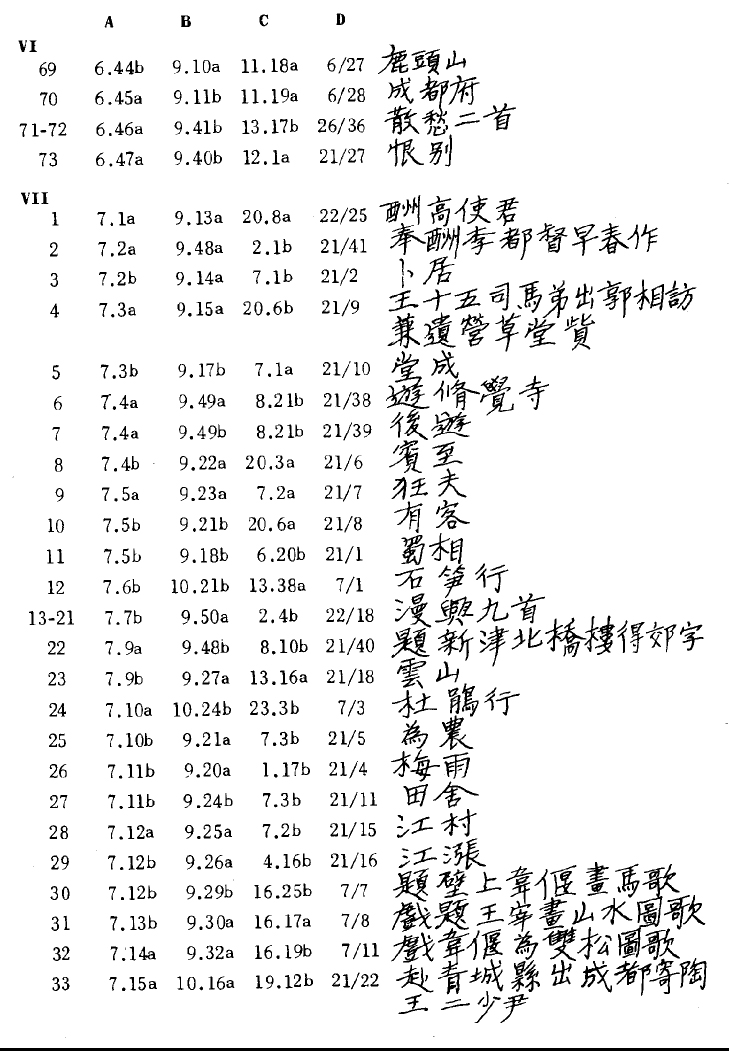 A B C D
VI
69 6.44b 9.10a 11.18a 6/27 鹿頭山
70 6.45a 9.11b 11.19a 6/28 成都府
71-72 6.46a 9.41b 13.17b 26/36 散愁二首
73 6.47a 9.40b 12.1a 21/27 恨别
VII
1 7.1a 9.13a 20.8a 22/25 酬高使君
2 7.2a 9.48a 2.1b 21/41 奉酬李都督早春作
3 7.2b 9.14a 7.1b 21/2 卜居
4 7.3a 9.15a 20.6b 21/9 王十五司馬弟出郭相訪
兼遺營草堂貲
5 7.3b 9.17b 7.1a 21/10 堂成
6 7.4a 9.49a 8.21b 21/38 遊脩覺寺
7 7.4a 9.49b 8.21b 21/39 後遊
8 7.4b 9.22a 20.3a 21/6 賓至
9 7.5a 9.23a 7.2a 21/7 狂夫
10 7.5b 9.21b 20.6a 21/8 有客
11 7.5b 9.18b 6.20b 21/1 蜀相
12 7.6b 10.21b 13.38a 7/1 石笋行
13-21 7.7b 9.50a 2.4b 22/18 漫興九首
22 7.9a 9.48b 8.10b 21/40 題新津北橋樓得郊字
23 7.9b 9.27a 13.16a 21/18 雲山
24 7.10a 10.24b 23.3b 7/3 杜鵑行
25 7.10b 9.21a 7.3b 21/5 為農
26 7.11b 9.20a 1.17b 21/4 梅雨
27 7.11b 9.24b 7.3b 21/11 田舍
28 7.12a 9.25a 7.2b 21/15 江村
29 7.12b 9.26a 4.16b 21/16 江漲
30 7.12b 9.29b 16.25b 7/7 題壁上韋偃畫馬歌
31 7.13b 9.30a 16.17a 7/8 戲題王宰畫山水圖歌
32 7.14a 9.32a 16.19b 7/11 戲韋偃為雙松圖歌
33 7.15a 10.16a 19.12b 21/22 赴青城縣出成都寄陶
王二少尹